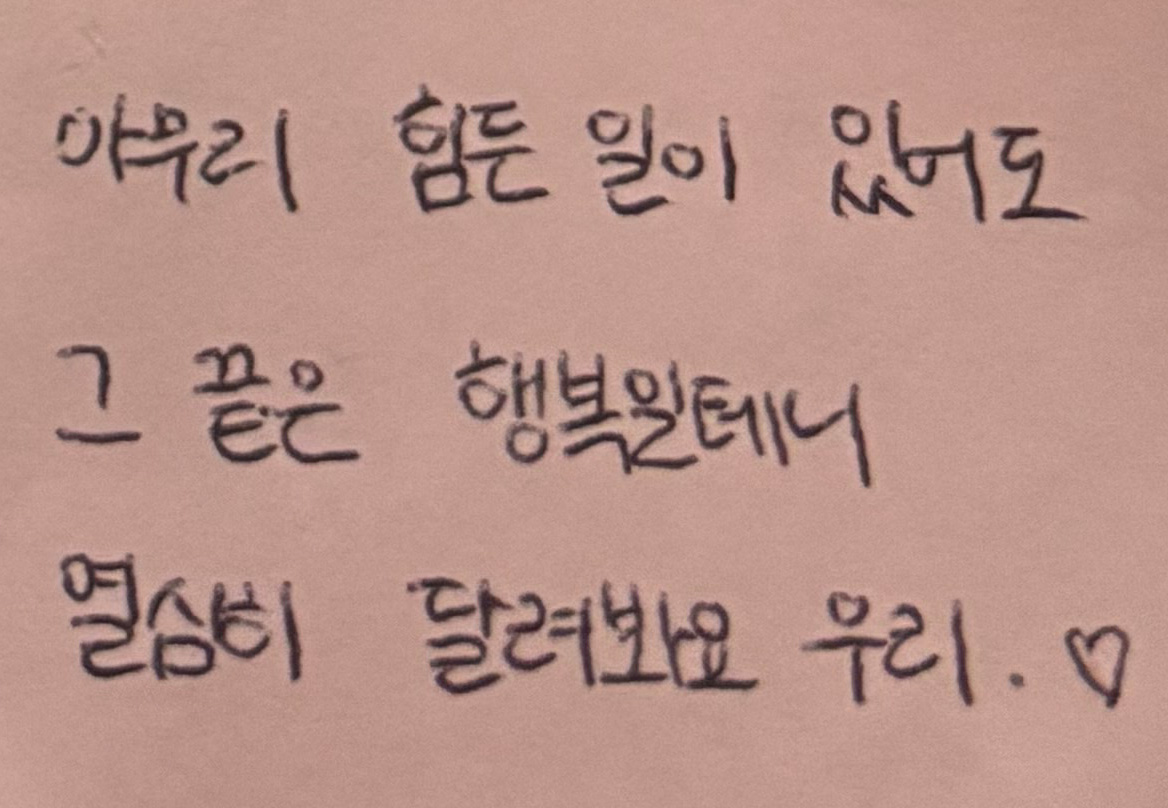 아무리 힘든 일이 있어도
그 끝은 행복일테니
열심히 달려봐요 우리. ♡